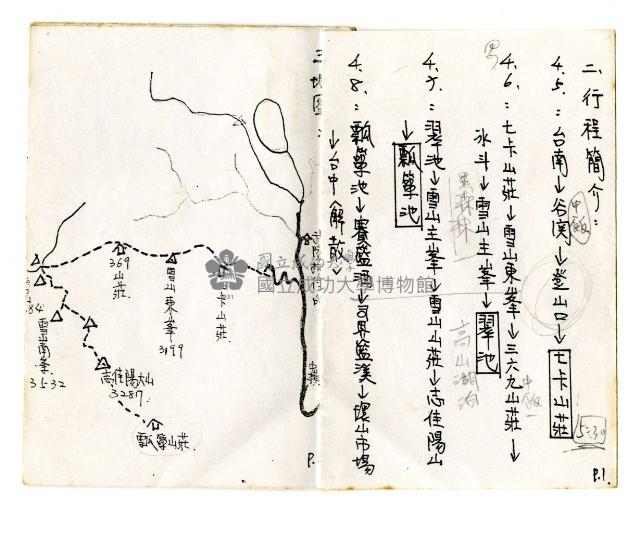 二、行程簡介：
4.5.：台南→谷関→登山口→七卡山莊
中飯
15:30
4.6.：七卡山莊→雪山東峯→三六九山莊→
中飯
冰斗→雪山主峯→翠池
黑森林
高山湖泊
4.7.：翠池→雪山主峯→雪山山莊→志佳陽山
→瓢簞池
4.8.：瓢簞池→賽籃酒→司界籃溪→環山市場
→台中解散。
P.1.
三、地圖：
369山莊
雪山東峯
3199
七卡山莊
雪山南峯
3532
志佳陽大山
3289
瓢簞山莊
P.
國立成功大學博物館